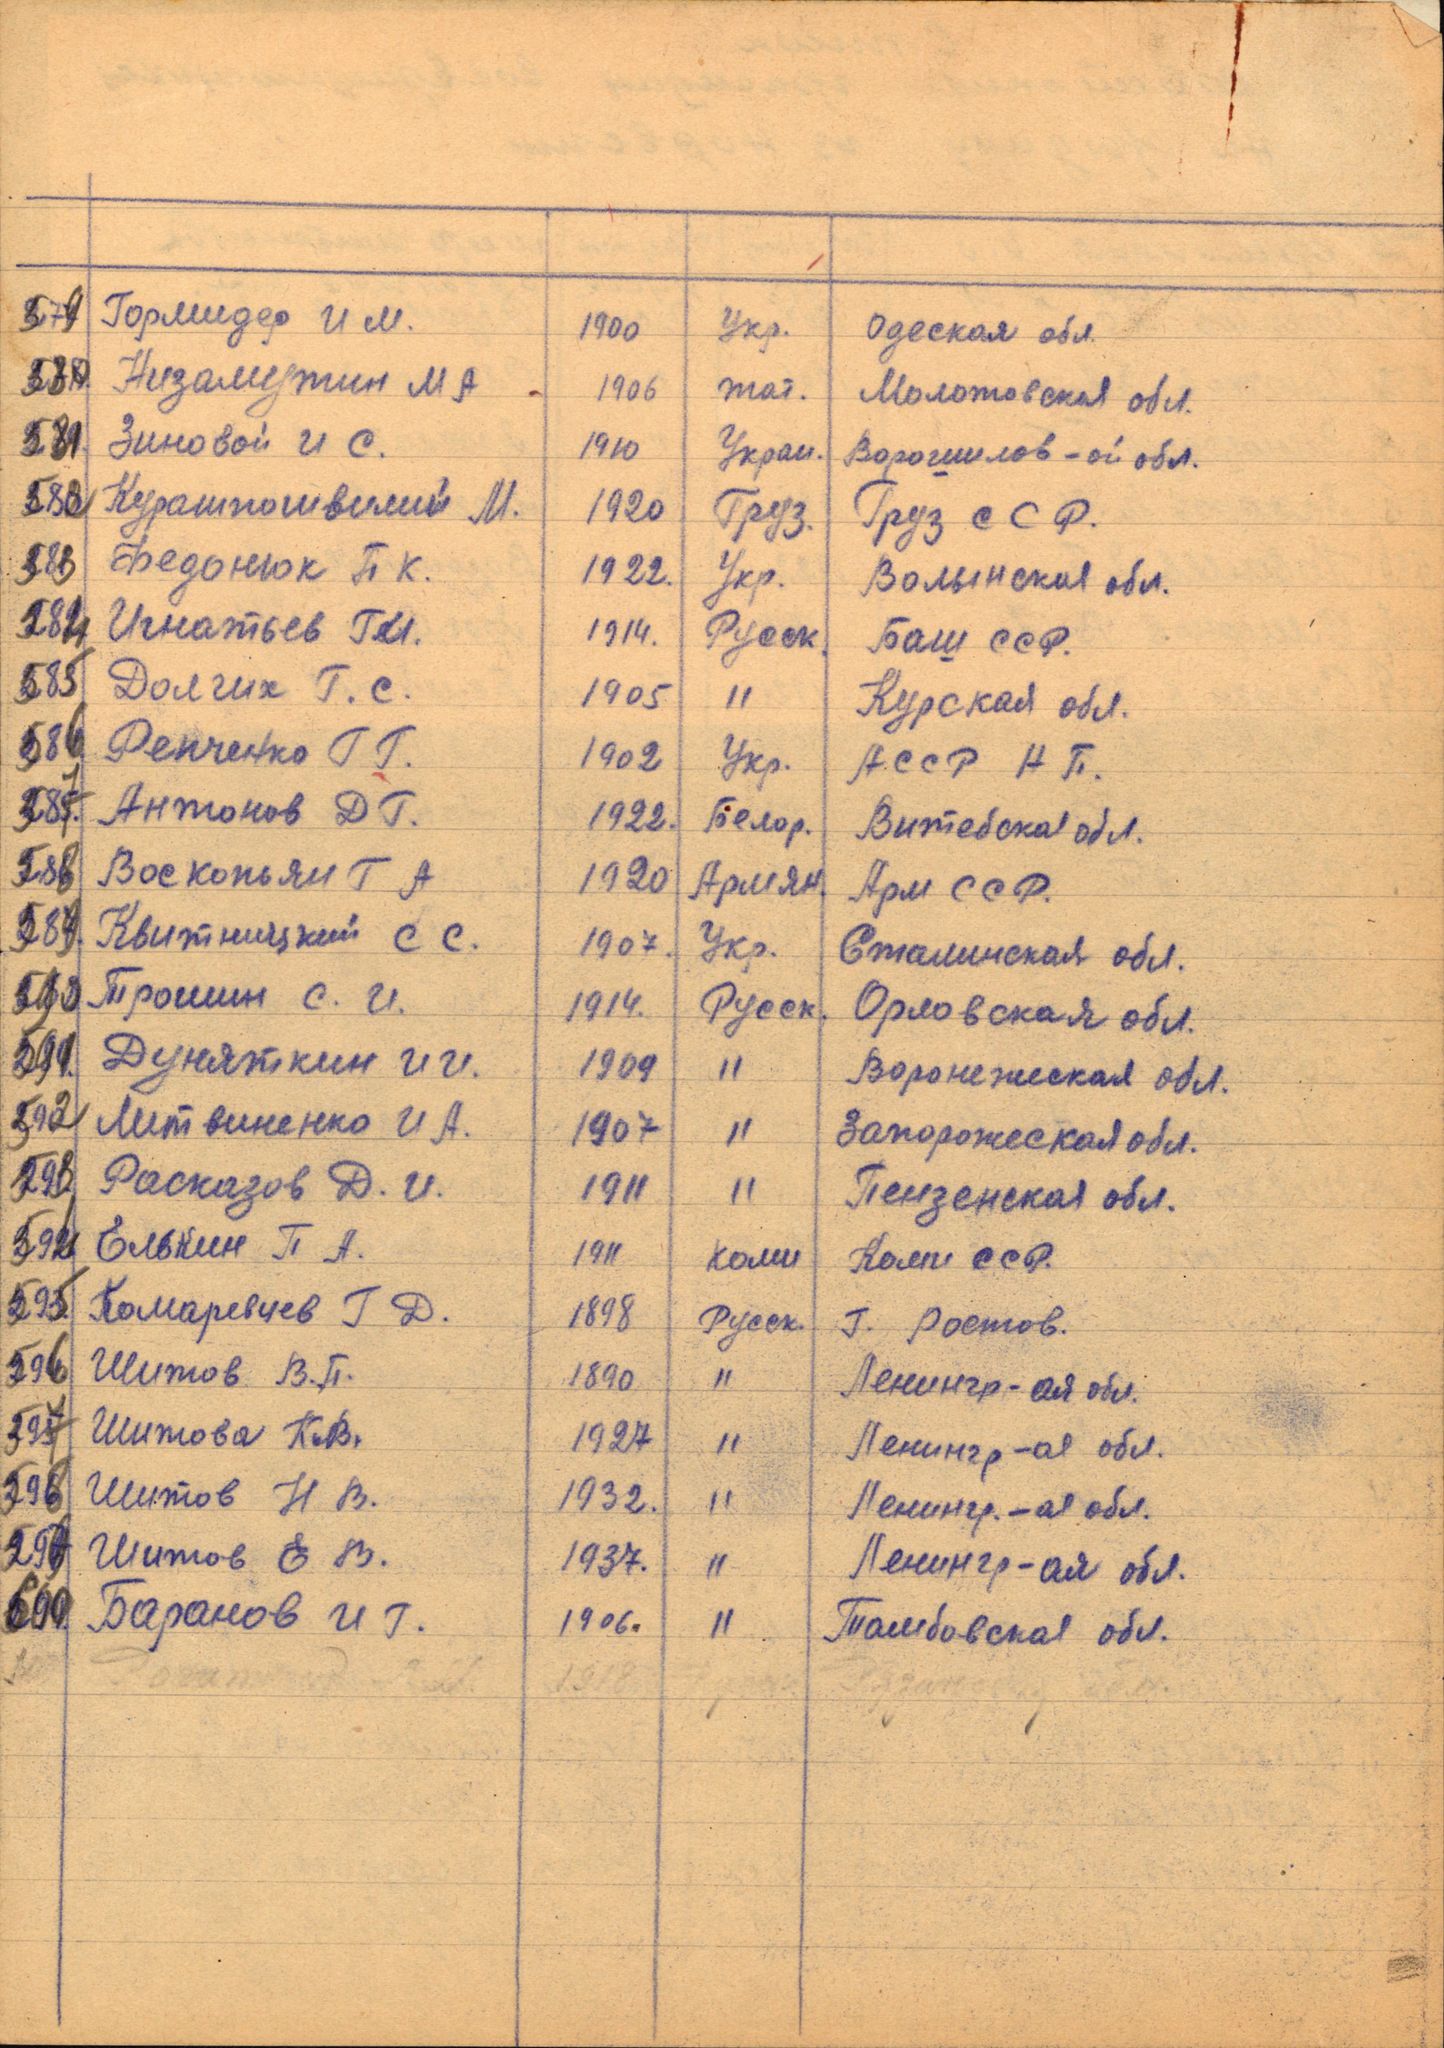 579 Гормидер И М. 1900 Укр. Одеская обл.
580. Низамутин М А 1906 тат. Молотовская обл.
581. Зиновой И С. 1910 Украи. Ворошилов-ой обл.
582 М. 1920 Груз. Груз С С Р.
583 Федонюк П К. 1922. Укр. Волынская обл.
584 Игнатьев Г.И. 1914. Русск. Баш ССР.
585 Долгих Г. С. 1905 " Курская обл.
586 Репченко Г Г. 1902 Укр. АССР Н П.
587. Антонов Д Г. 1922. Белор. Витебская обл.
588 Воскопьян Г А 1920 Армян. Арм ССР.
589. Квитницкий С С. 1907. Укр. Сталинская обл.
590 Трошин С. И. 1914. Русск. Орловская обл.
591. Дуняткин И И. 1909 " Воронежеская обл.
592 Литвиненко И А. 1907 " Запорожеская обл.
593 Расказов Д. И. 1911 " Пензенская обл.
594 Елькин П А. 1911 коми Коми ССР.
595 Комаревцев Г Д. 1898 Русск. г. Ростов.
596 Шитов В.П. 1890 " Ленингр-ая обл.
597 Шитова К.В. 1927 " Ленингр-ая обл.
598 Шитов Н В. 1932. " Ленингр.-ая обл.
599 Шитов Е В. 1937. " Ленингр-ая обл.
600. Баранов И Г. 1906. " Тамбовская обл.
1918